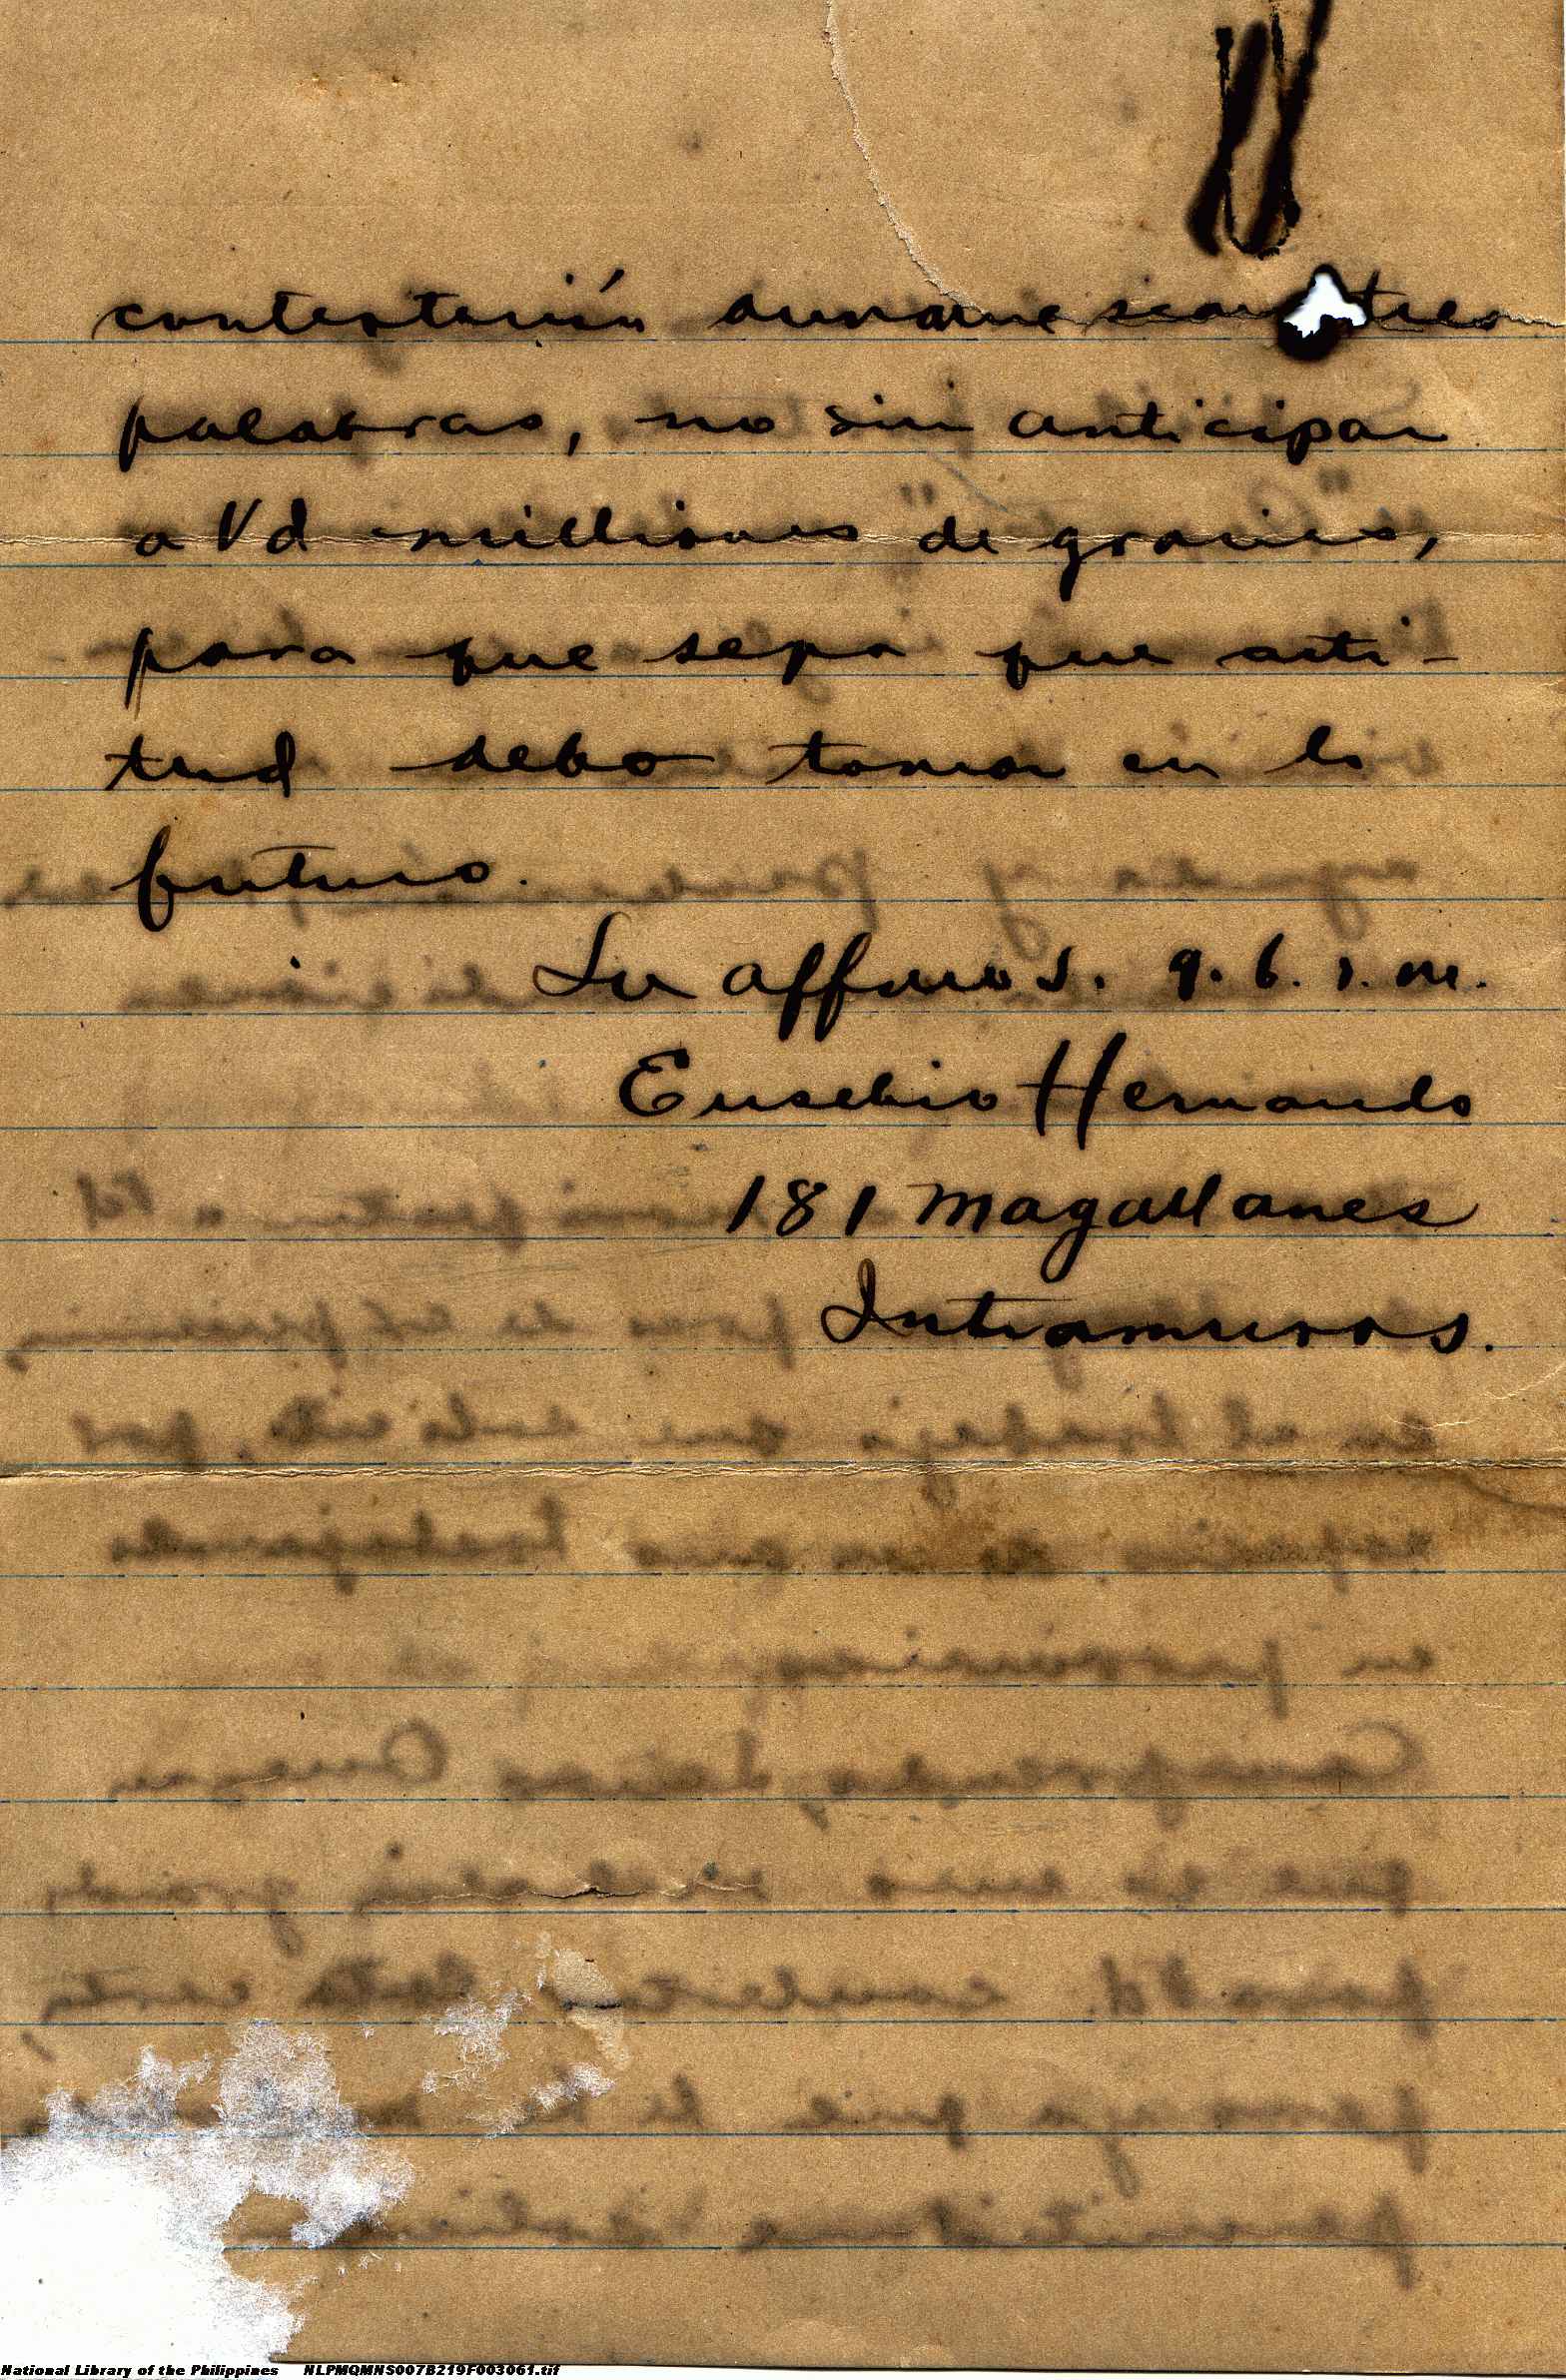 contestación aunque sean tres
palabras, no sin anticipar
a Vd milliones de gracias,
para que sepa que acti-
tud debo tomar en lo
futuro.
Su affmo s. q. b. s. m.
Eusebio Hernando
181 Magallanes
Intramuros.
National Library of the Philippines NLPMQMNS007B219F003061.tif